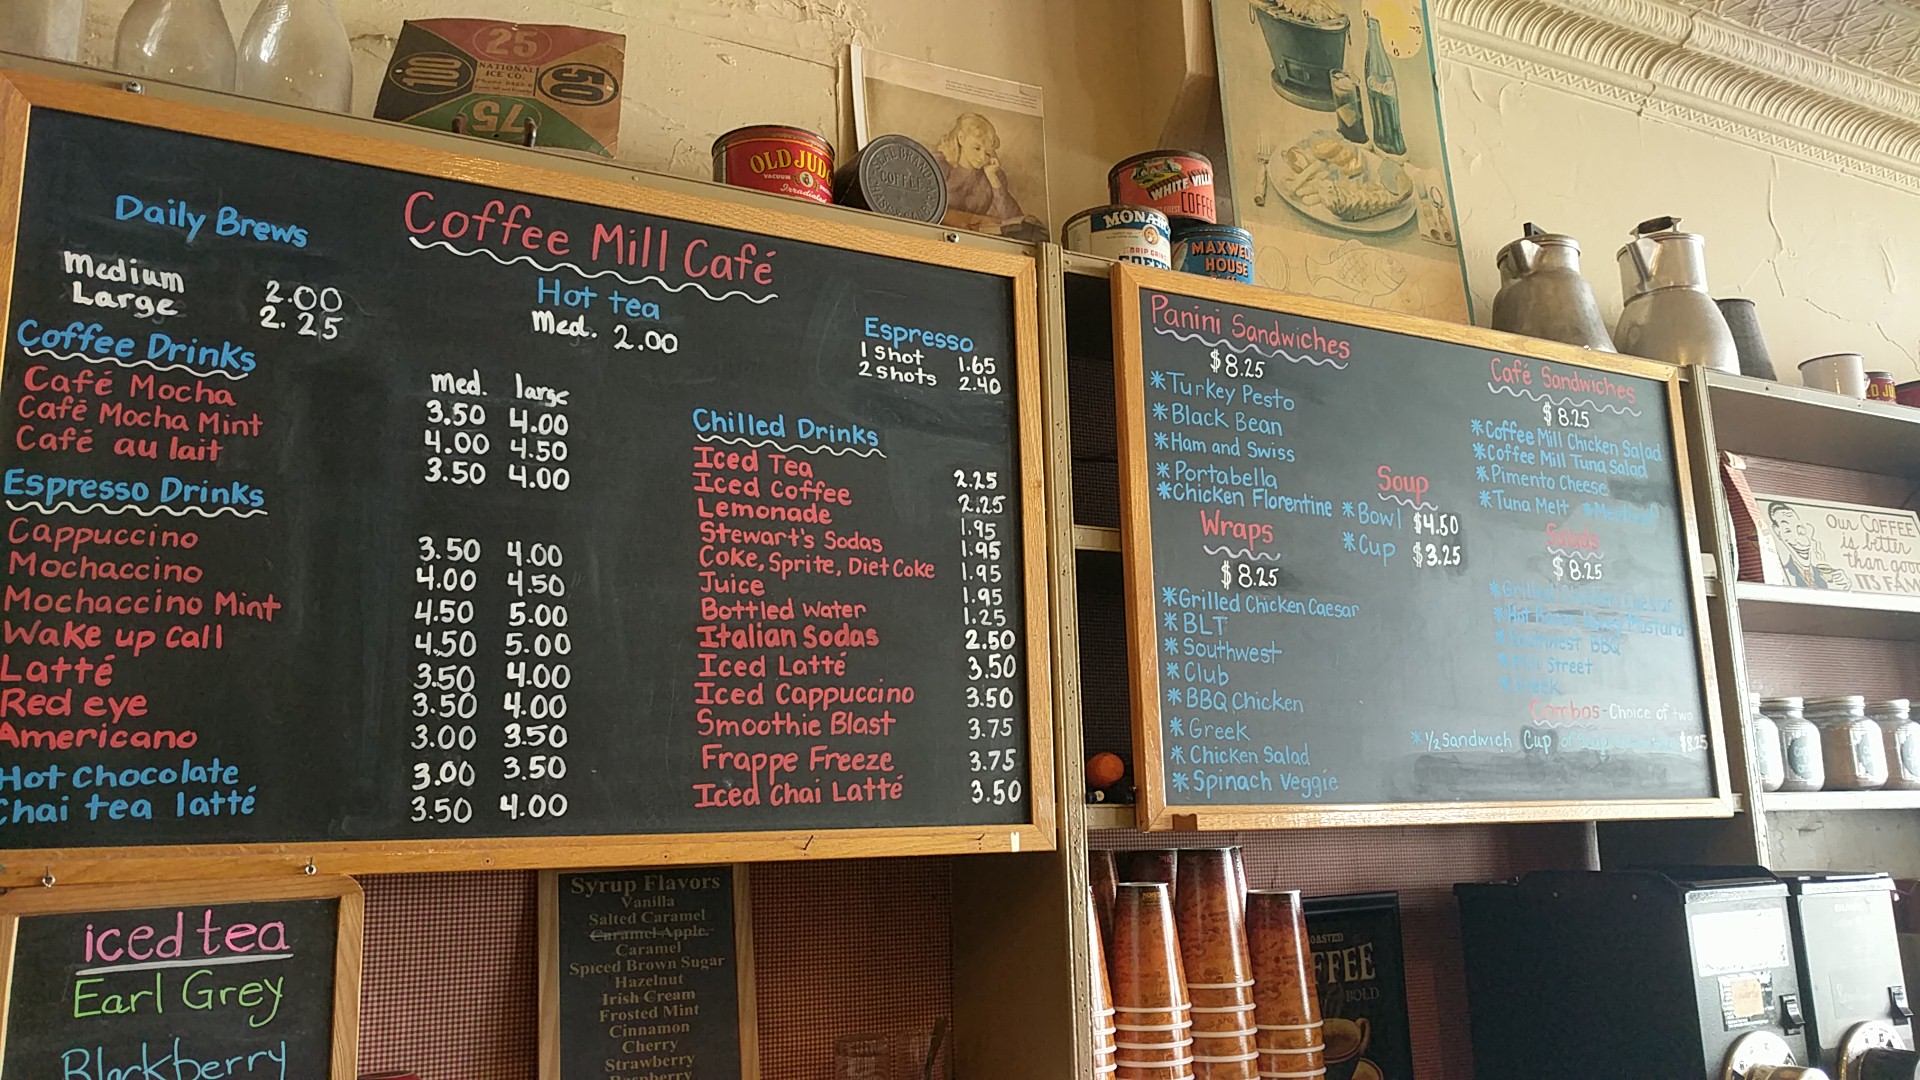 25
NATIONAL
ICE CO.
100
50
75
OLD JUDGE
VACUUM
Irradiated
SEAL BRAND
COFFEE
WHITE VILLA
COFFEE
MONARCH
DRIP GRIND
COFFEE
MAXWELL
HOUSE
Coffee Mill Café
Daily Brews
Medium 2.00
Large 2.25
Hot tea
Med. 2.00
Espresso
1 shot 1.65
2 shots 2.40
Coffee Drinks
med. large
Café Mocha 3.50 4.00
Café Mocha Mint 4.00 4.50
Café au lait 3.50 4.00
Espresso Drinks
Cappuccino 3.50 4.00
Mochaccino 4.00 4.50
Mochaccino Mint 4.50 5.00
Wake up Call 4.50 5.00
Latté 3.50 4.00
Red eye 3.50 4.00
Americano 3.00 3.50
Hot Chocolate 3.00 3.50
Chai tea latté 3.50 4.00
Chilled Drinks
Iced Tea 2.25
Iced Coffee 2.25
Lemonade 1.95
Stewart's Sodas 1.95
Coke, Sprite, Diet Coke 1.95
Juice 1.95
Bottled Water 1.25
Italian Sodas 2.50
Iced Latté 3.50
Iced Cappuccino 3.50
Smoothie Blast 3.75
Frappe Freeze 3.75
Iced Chai Latté 3.50
Panini Sandwiches
$8.25
*Turkey Pesto
*Black Bean
*Ham and Swiss
*Portabella
*Chicken Florentine
Wraps
$8.25
*Grilled Chicken Caesar
*BLT
*Southwest
*Club
*BBQ Chicken
*Greek
*Chicken Salad
*Spinach Veggie
Soup
*Bowl $4.50
*Cup $3.25
Café Sandwiches
$8.25
*Coffee Mill Chicken Salad
*Coffee Mill Tuna Salad
*Pimento Cheese
*Tuna Melt
Salads
$8.25
Street
Combos-Choice of two
*½ Sandwich Cup of $8.25
Our COFFEE
is better
than good
IT'S FAM
iced tea
Earl Grey
Blackberry
Syrup Flavors
Vanilla
Salted Caramel
Caramel Apple
Caramel
Spiced Brown Sugar
Hazelnut
Irish Cream
Frosted Mint
Cinnamon
Cherry
Strawberry
Raspberry
OASTED
FFEE
BOLD